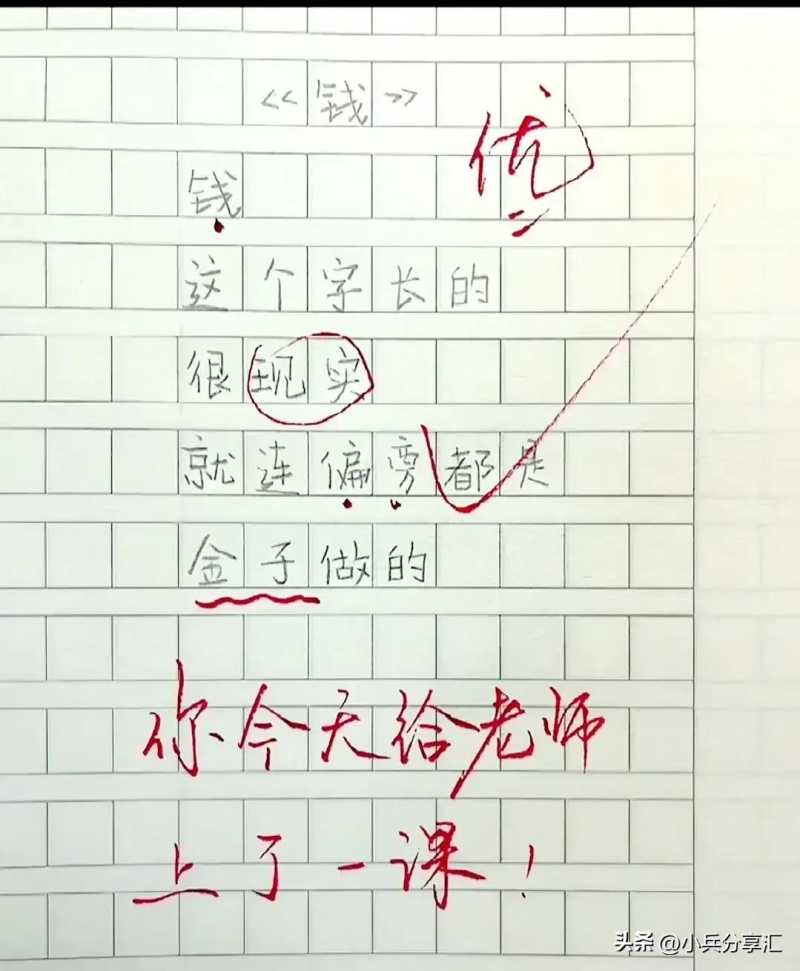 《钱》
优
钱
这个字长的
很现实
就连偏旁都是
金子做的
你今天给老师
上了一课！
头条 @小兵分享汇